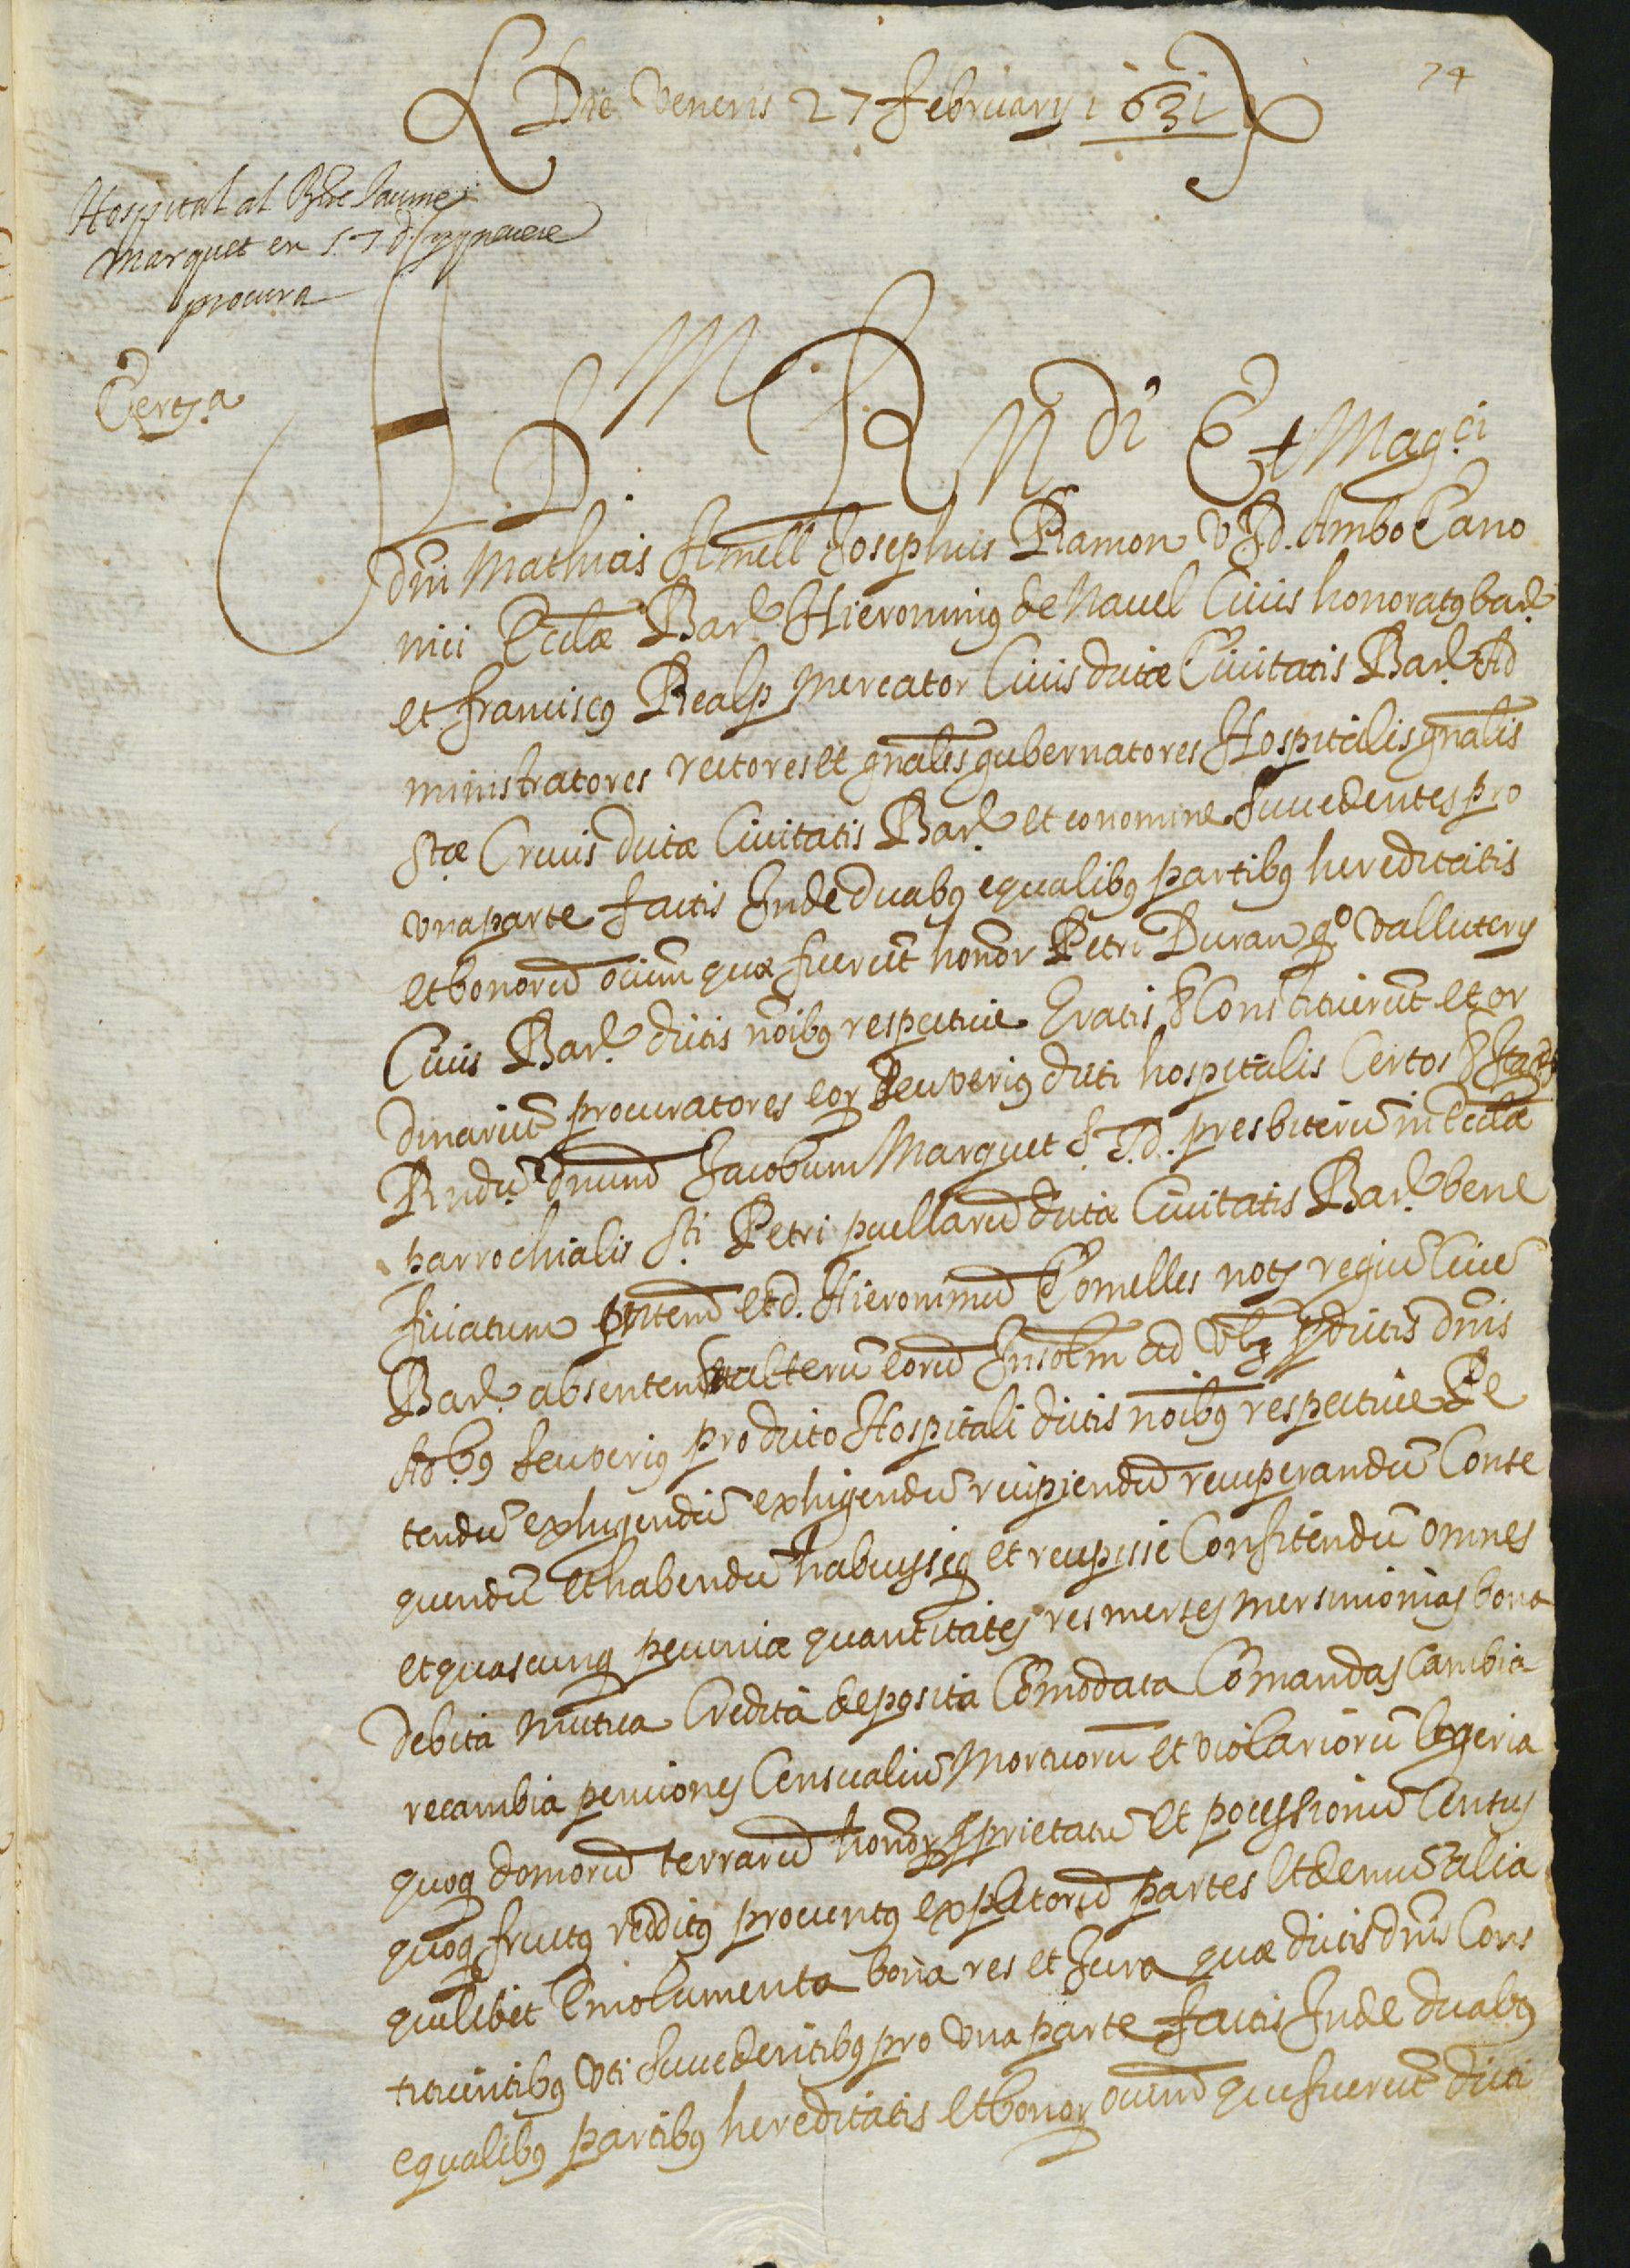 74
Die Veneris 27 februarij 1631
Hospital al Rnt Jaume
Marquet en s. T. d. prevere
procura
Tersa
D. M. Rndi Et Magci
dni Mathias Amell Josephus Ramon V J d. Ambo Cano
nici Ecclæ Bar. Hieronimus de Navel Civis honoratus bar.
et franciscus Realp Mercator Civis dictæ Civitatis Bar. Ad
ministratores rectores et gnales gubernatores Hospitalis gnalis
Stæ Crucis dictæ Civitatis Bar. et eo nomine Succedentes pro
una parte factis Inde duabus equalibus partibus hereditatis
et bonorū oium quæ fuerūt honor Petri Duran qº vallutery
Civis Bar. dictis noibus respective Gratis & Constituerūt et or
dinarūt procuratores eor seu verius dicti hospitalis Certos &
Rndū dnum Jacobum Marquet S. T. d. presbiterū in Eccla
parrochialis Sti Petri puellarū dictæ Civitatis Bar. bene
ficiatum pntem et d. Hieronimū Comelles notz regiū Cive
Bar. absentem et alterū eorū Insolm ad Vlz p dictis dnis
Adbus seu verius pro dicto Hospitali dictis noibus respective Pe
tendū exhigendū exhigendū recipiendū recuperandū Conse
quendū et habendū habuisseq et recepisse Confitendū omnes
et quascunq pecuniæ quantitates res merses mersimonias bona
debita mutua Credita deposita Comodata Comandas Cambia
recambia penciones Censualiū Mortuorū et violariorū logeria
quoq domorū terrarū honor pprietatū et pocessionū Census
quoq fructus redditus proventus expletorū partes Et demū alia
quælibet Emolumenta bona res et Jura quæ dictis dnis Cons
tituentibus Vti succedentibus pro una parte factis Inde duabus
equalibus partibus hereditatis Et bonor oium que fuerūt dicti